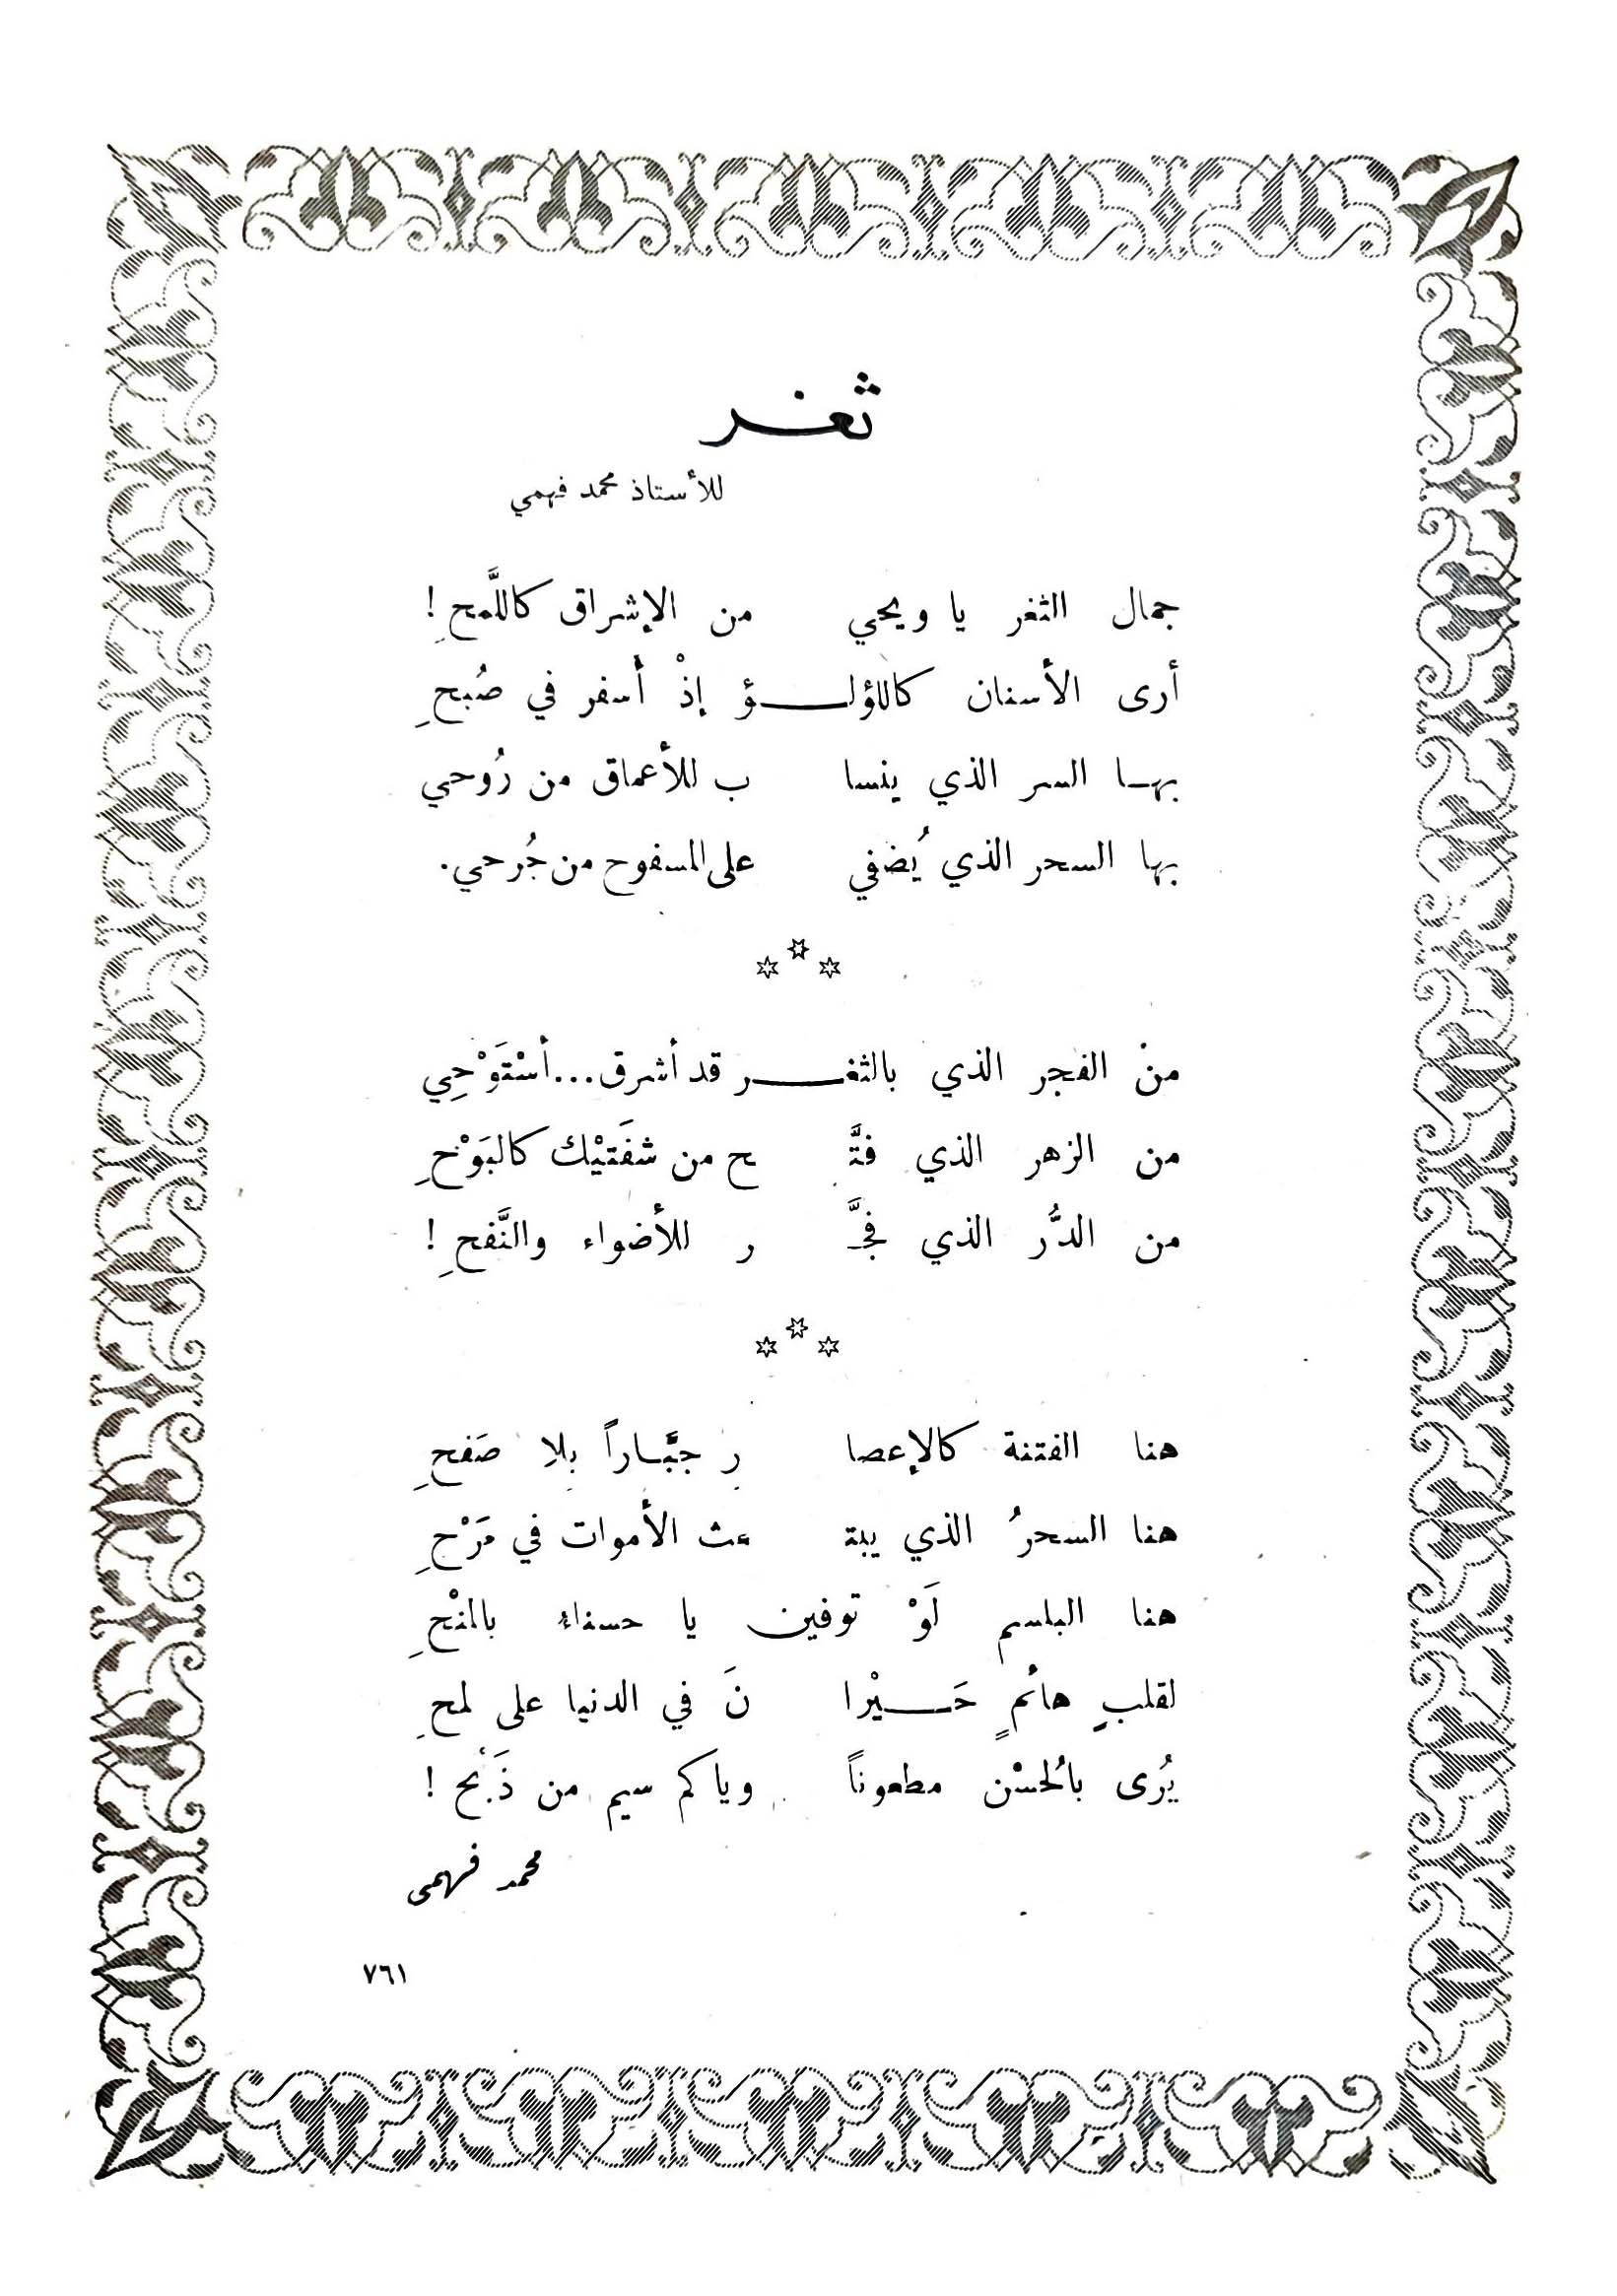 ثغر
للأستاذ محمد فهمي
جمال الثغر يا ويحي من الإشراق كاللَّمحِ !
أرى الأسنان كاللؤلــؤ إذْ أسفر في صُبحِ
بهـا السر الذي ينسا ب للأعماق من رُوحي
بها السحر الذي يُضفي على المسفوح من جُرحي.
منْ الفجر الذي بالثغــر قد أشرق...أسْتَوْحِي
من الزهر الذي فتَّـ ـح من شفَتيْك كالبَوْحِ
من الدُّر الذي فجَّـ ر للأضواء والنَّفحِ !
هنا الفتنة كالإعصا رِ جبَّـاراً بِلا صَفحِ
هنا السحرُ الذي يبتـ ـعث الأموات في مَرْحِ
هنا البلسم لَوْ توفين يا حسناءُ بالمنْحِ
لقلبٍ هائمٍ حَــيْرا نَ في الدنيا على لمحِ
يُرى بالُحسْن مطعوناً وياكم سيم من ذَبْح !
محمد فهمى
٧٦١